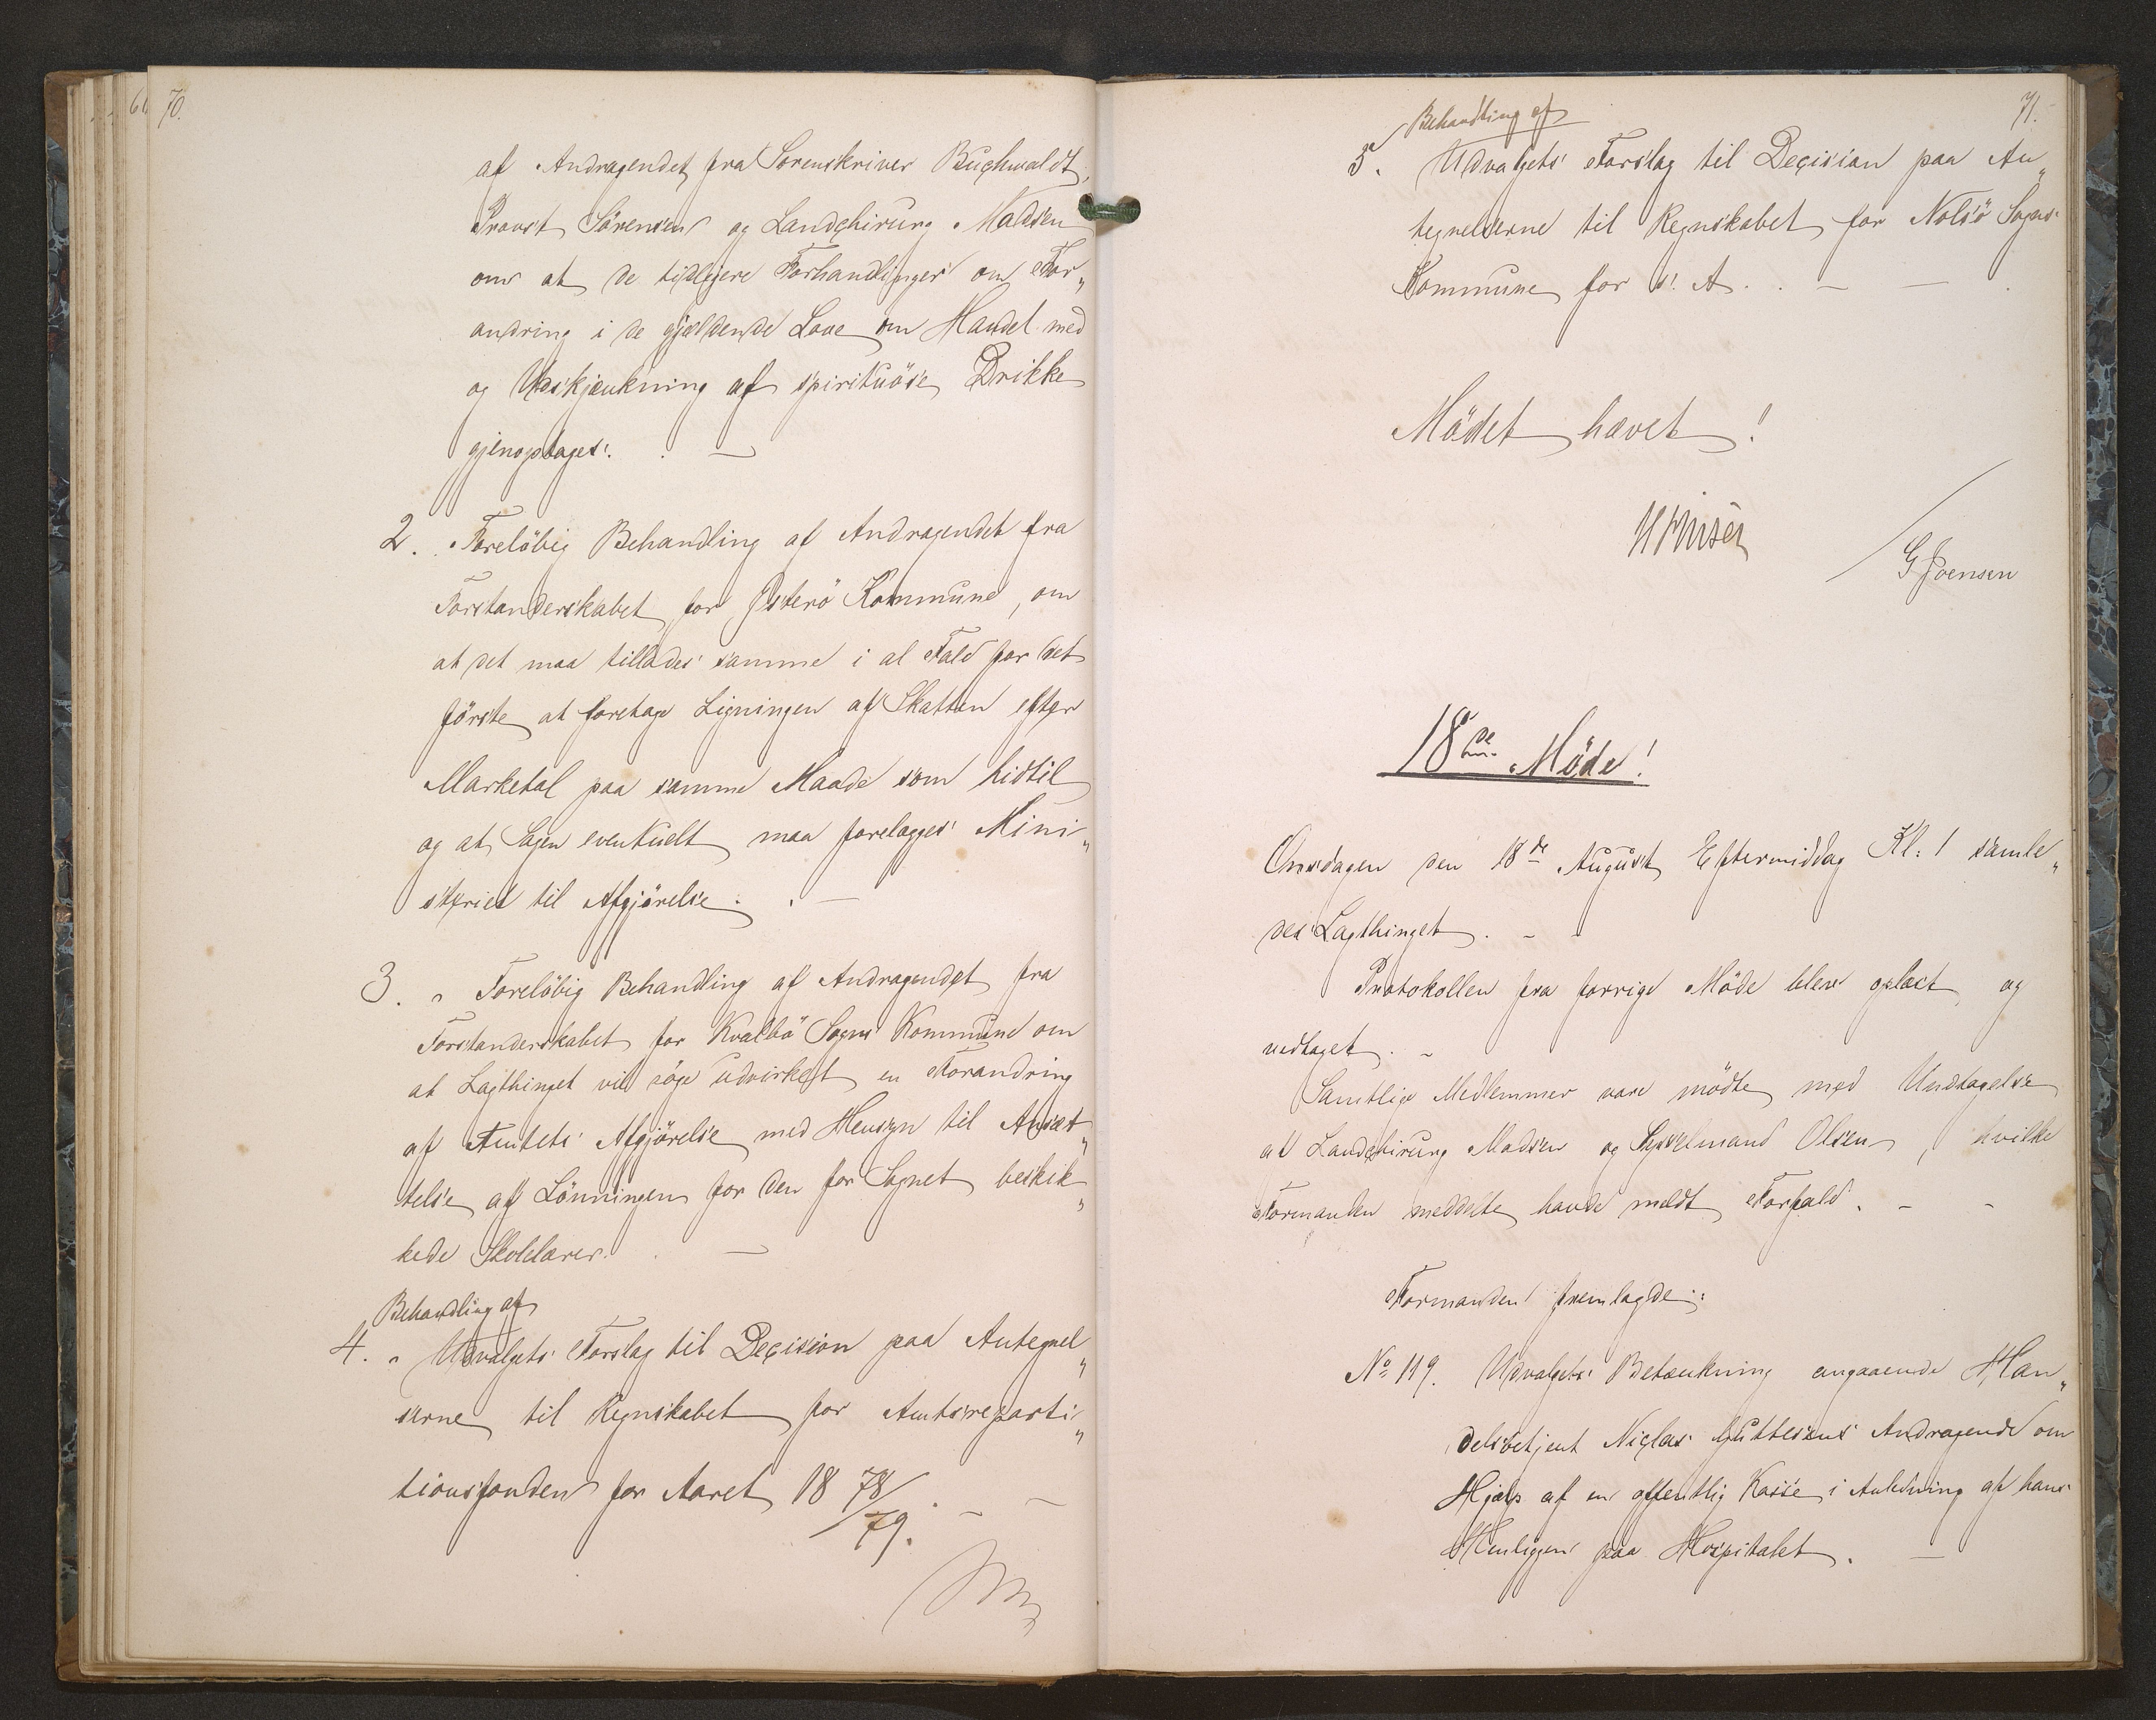 70.
af Andragendet fra Sorenskriver Buchwaldt,
Provst Sörensen og Landchirurg Madsen
om at de tidligere Forhandlinger om For„
andring i de gjældende Love om Handel med
og Udskjænkning af spirituöse Drikke
gjenoptages. . —
2. Foreløbig Behandling af Andragendet fra
Forstanderskabet for Østerö Kommune, om
at det maa tillades samme i al Fald for det
förste at foretage Ligningen af Skatten efter
Marketal paa samme Maade som hidtil
og at Sagen eventuelt maa forelægges Mini„
steriet til Afgjörelse. . —
3. „ Forelöbig Behandling af Andragendet fra
Forstanderskabet for Kvalbö Sogns Kommune om
at Lagthinget vil söge udvirket en Forandring
af Amtets Afgjörelse med Hensyn til Ansæt„
telse af Lönningen for den for Sognet beskik„
kede Skolelærer. . —
Behandling af
4. „ Udvalgets Forslag til Decision paa Antegnel„
serne til Regnskabet for Amtsreparti„
tionsfonden for Aaret 1878/79. — —
71.
Behandling af
5. Udvalgets Forslag til Decision paa An„
tegnelserne til Regnskabet for Nolsö Sogns
Kommune for s. A. . — — .
Mödet hævet!
G Joensen
18de Möde!
Onsdagen den 18de August Eftermiddag Kl: 1 samle„
des Lagthinget. –
Protokollen fra forrige Möde blev oplæst og
vedtaget. –
Samtlige Medlemmer vare mödte med Undtagelse
af Landchirurg Madsen og Sysselmand Olsen, hvilke
Formanden meddelte havde meldt Forfald. – –
Formanden fremlagde:
No 119. Udvalgets Betænkning angaaende Han„
delsbetjent Niclas Guttesens Andragende om
Hjælp af en offentlig Kasse i Anledning af hans
Henliggen paa Hospitalet. —